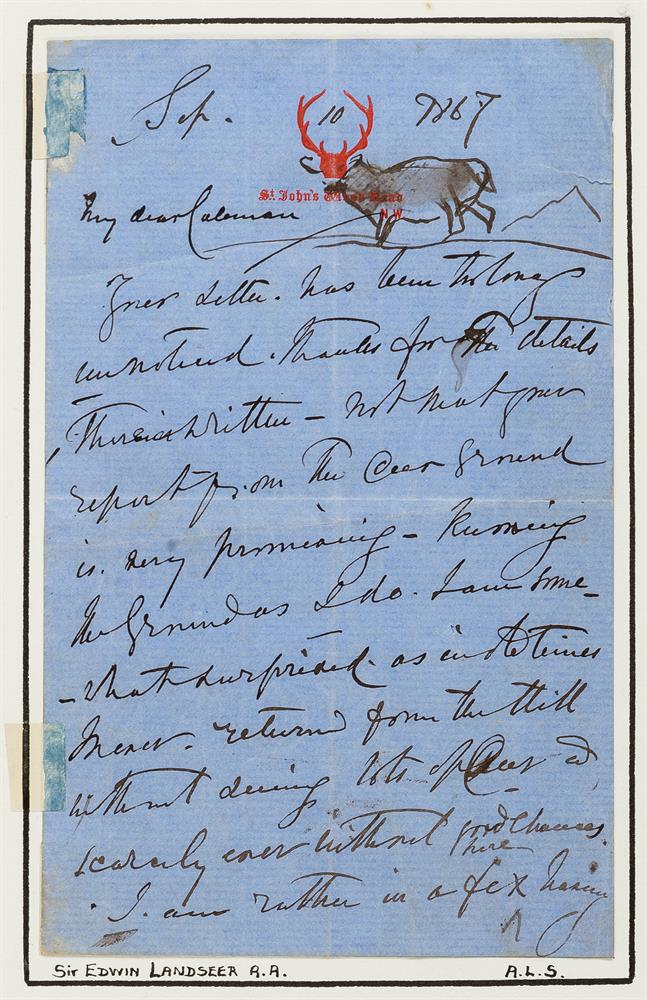 Sep. 10 1867
St. John's Wood Road
N.W.
My dear Coleman
Your Letter. has been too long
unnoticed. Thanks for the details
Therein written — not that your
report from the Deer Ground
is. very promising — Knowing
the Ground as I do. I am some-
-what surprised. as in old times
I never. returned from the Hill
without seeing lots of Deer &
scarcely ever without good chances.
here
I. am rather in a fix having
Sir EDWIN LANDSEER R.A.
A.L.S.